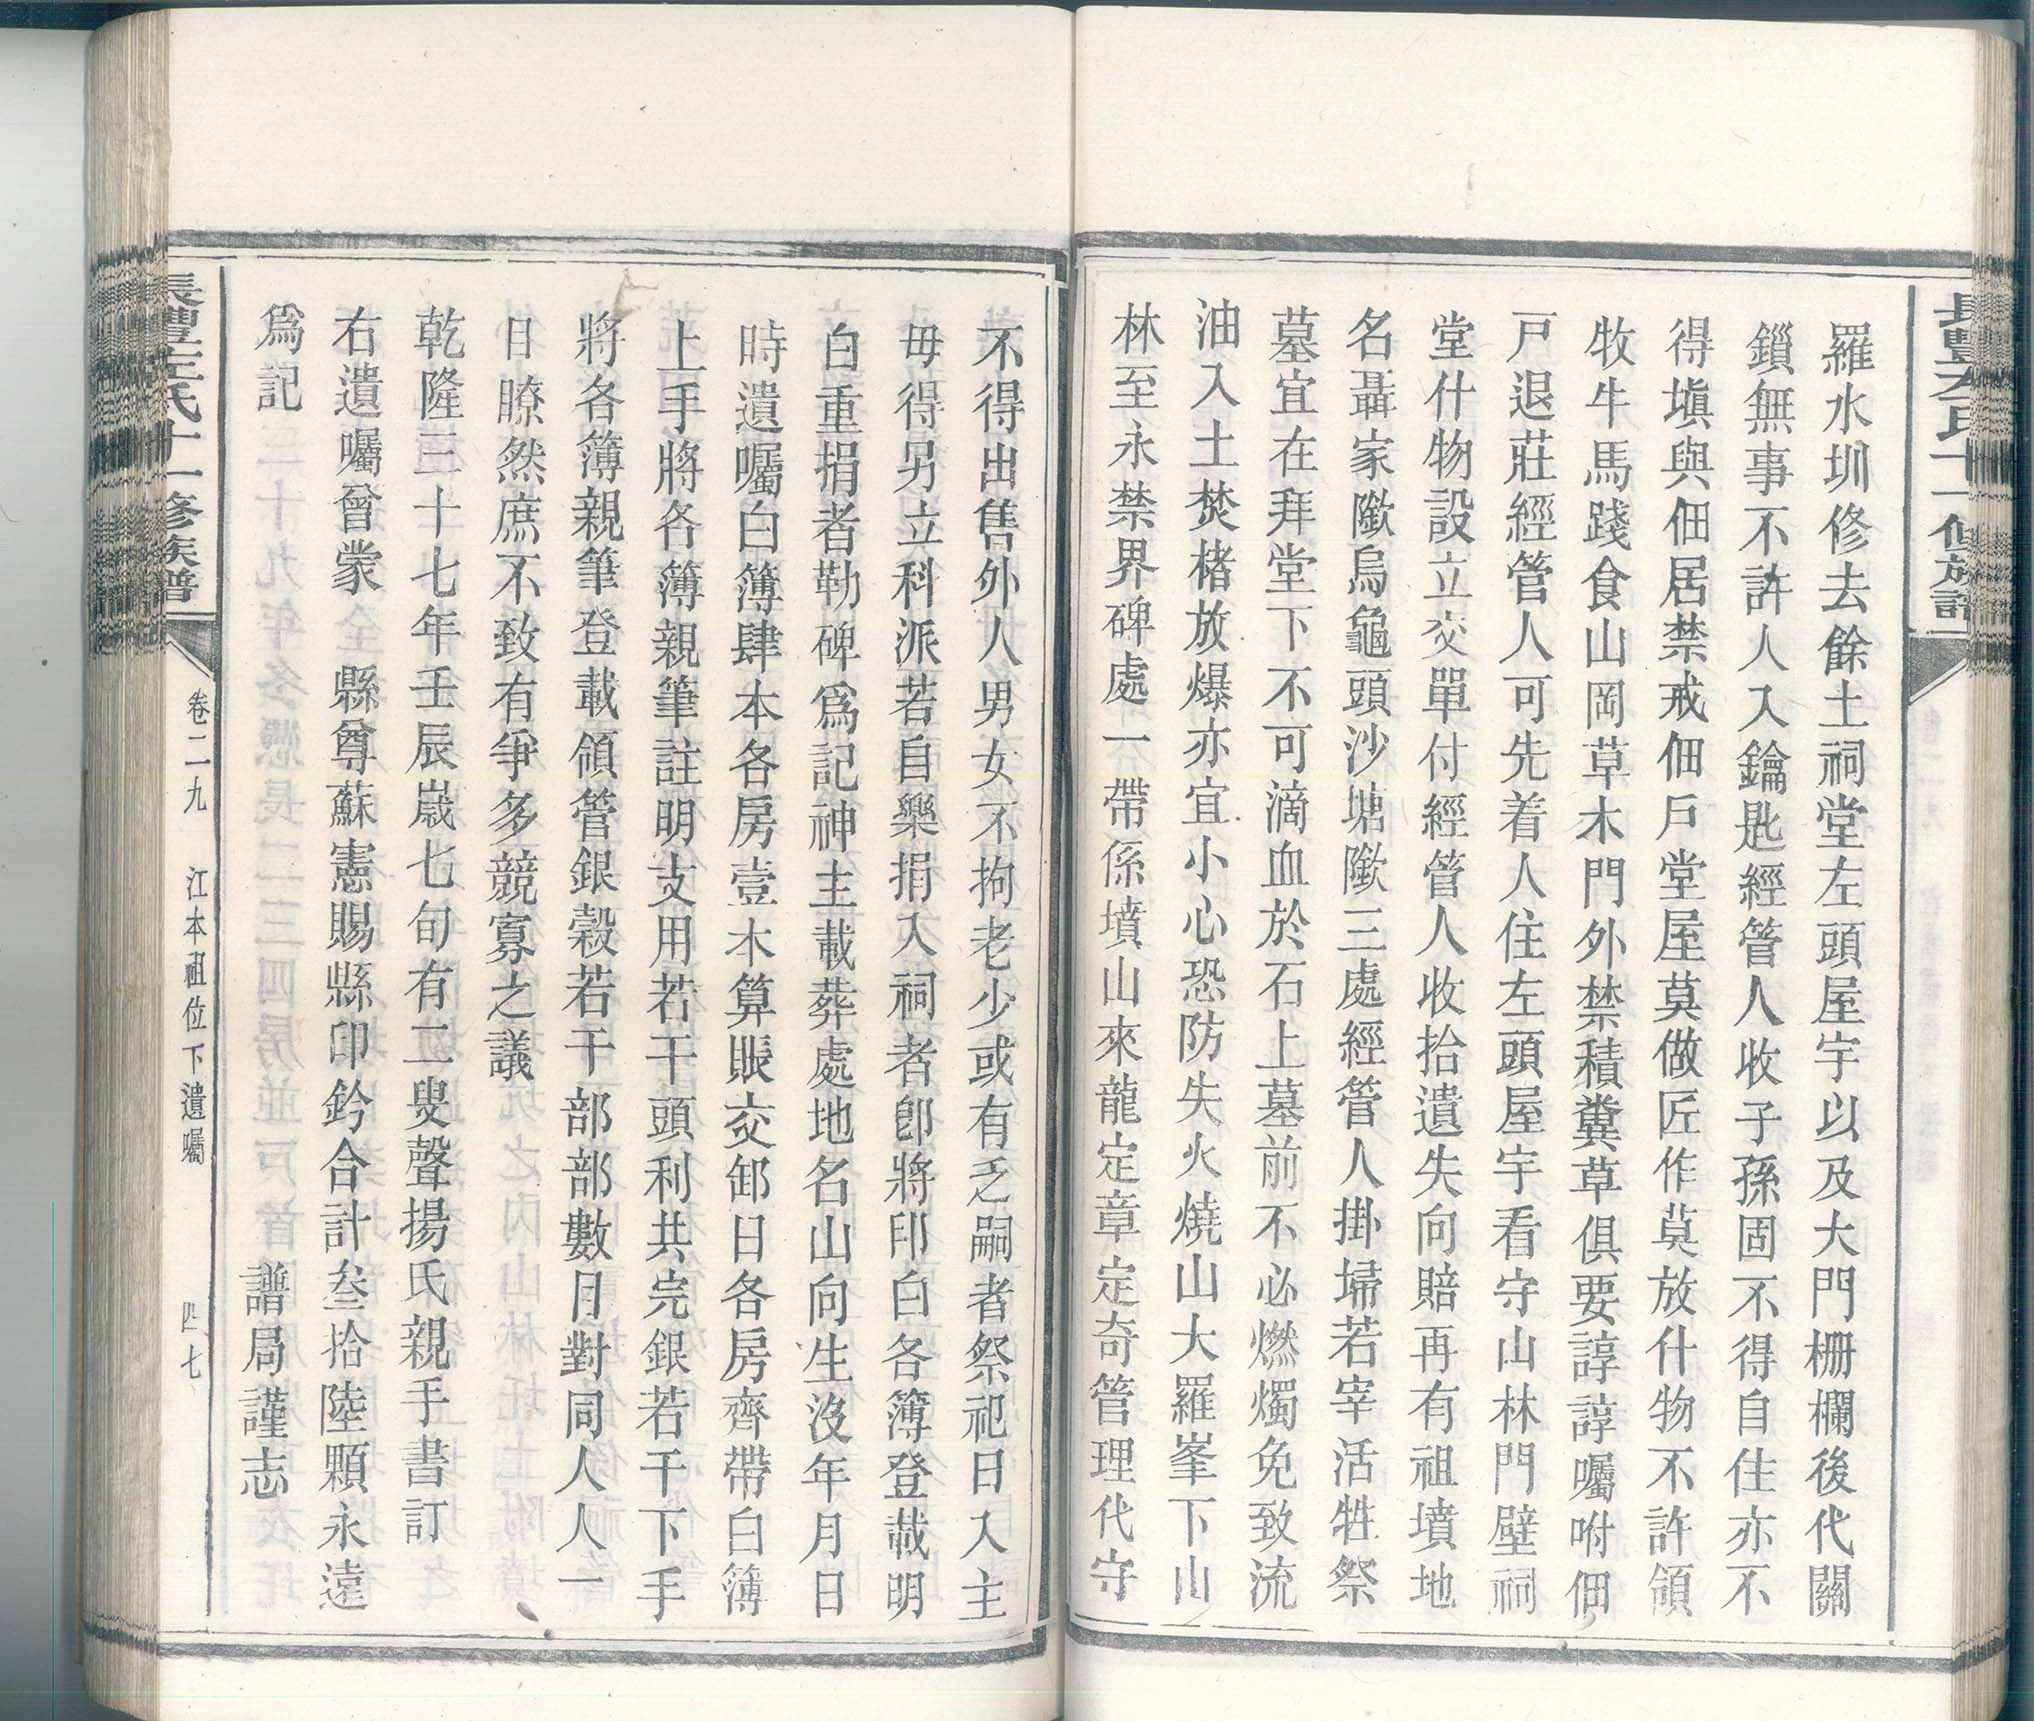 長豐左氏十一修族譜
羅水圳修去餘土祠堂左頭屋宇以及大門柵欄後代關
鎖無事不許人入鑰匙經管人收子孫固不得自住亦不
得塡與佃居禁戒佃戶堂屋莫做匠作莫放什物不許領
牧牛馬踐食山岡草木門外禁積糞草俱要諄諄囑咐佃
戶退莊經管人可先着人住左頭屋宇看守山林門壁祠
堂什物設立交單付經管人收拾遺失向賠再有祖墳地
名聶家隞烏龜頭沙塘隞三處經管人掛掃若宰活牲祭
墓宜在拜堂下不可滴血於石上墓前不必燃燭免致流
油入土焚楮放爆亦宜小心恐防失火燒山大羅峯下山
林至永禁界碑處一帶係墳山來龍定章定奇管理代守
不得出售外人男女不拘老少或有乏嗣者祭祀日入主
毋得另立科派若自樂捐入祠者卽將印白各簿登載明
白重捐者勒碑爲記神主載葬處地名山向生沒年月日
時遺囑白簿肆本各房壹本算賬交卸日各房齊帶白簿
上手將各簿親筆註明支用若干頭利共完銀若干下手
將各簿親筆登載領管銀穀若干部部數目對同人人一
日瞭然庶不致有爭多競寡之議
乾隆三十七年壬辰歲七旬有二叟聲揚氏親手書訂
右遺囑曾蒙 縣尊蘇憲賜縣印鈐合計叁拾陸顆永遠
爲記 譜局謹志
長豐左氏十一修族譜 卷二九 江本祖位下遺囑 四七